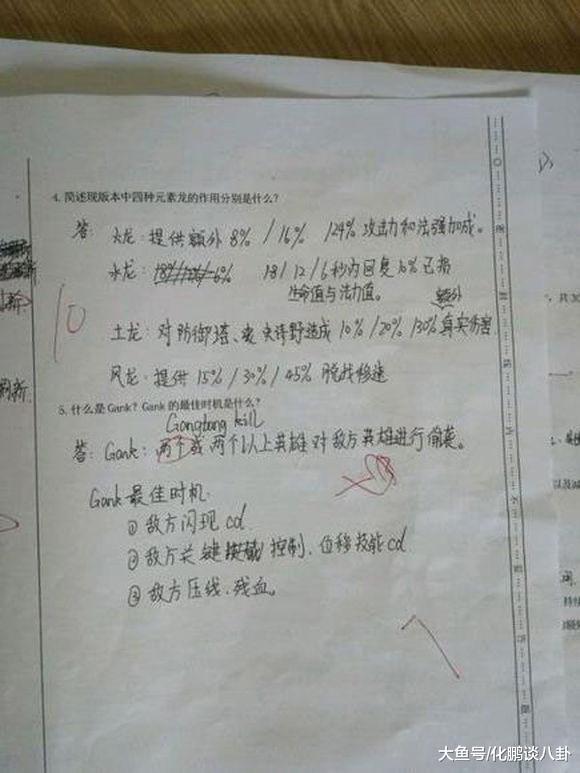 4. 简述现版本中四种元素龙的作用分别是什么?
答: 火龙: 提供额外 8% / 16% / 24% 攻击力和法强加成。
水龙: 18 / 12 / 6 秒内回复 10% 已损
生命值与法力值。
额外
土龙: 对防御塔、史诗野造成 10% / 20% / 30% 真实伤害
风龙: 提供 15% / 30% / 45% 脱战移速
10
5. 什么是 Gank? Gank 的最佳时机是什么?
Gangbang kill
答: Gank: 两个或两个以上英雄对敌方英雄进行偷袭。
Gank 最佳时机:
① 敌方闪现 cd.
② 敌方关键控制、位移技能 cd
③ 敌方压线、残血。
7
刷新.
大鱼号/化鹏谈八卦